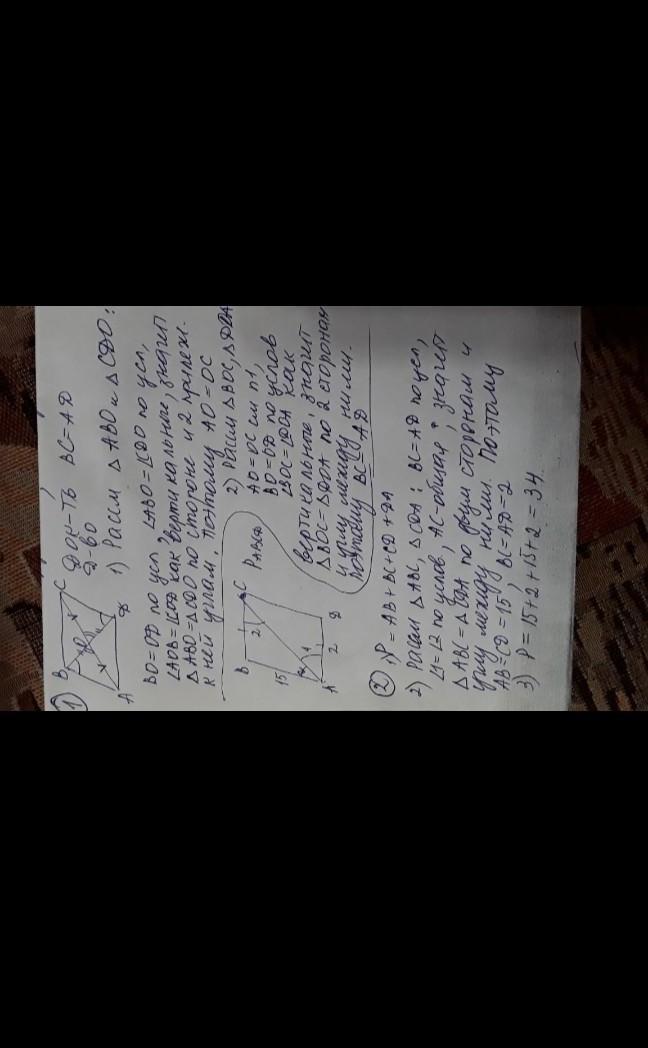 1
B
C
A
D
O
Док-ть BC=AD
Д-во
1) Рассм △ABO и △CDO:
BO=OD по усл, ∠ABO=∠CDO по усл,
∠AOB=∠COD как вертикальные, значит
△ABO=△CDO по стороне и 2 прилеж.
к ней углам, поэтому AO=OC
2) Рассм △BOC, △DOA
AO=OC из п1,
BO=OD по услов
∠BOC=∠DOA как
вертикальные, значит
△BOC=△DOA по 2 сторонам
и углу между ними.
поэтому BC=AD
B
C
15
2
1
A
2
D
P ABCD
2
1) P = AB + BC + CD + DA
2) Рассм △ABC, △CDA: BC=AD по усл,
∠1=∠2 по услов, AC-общая, значит
△ABC=△CDA по двум сторонам и
углу между ними. Поэтому
AB=CD=15, BC=AD=2
3) P=15+2+15+2=34.